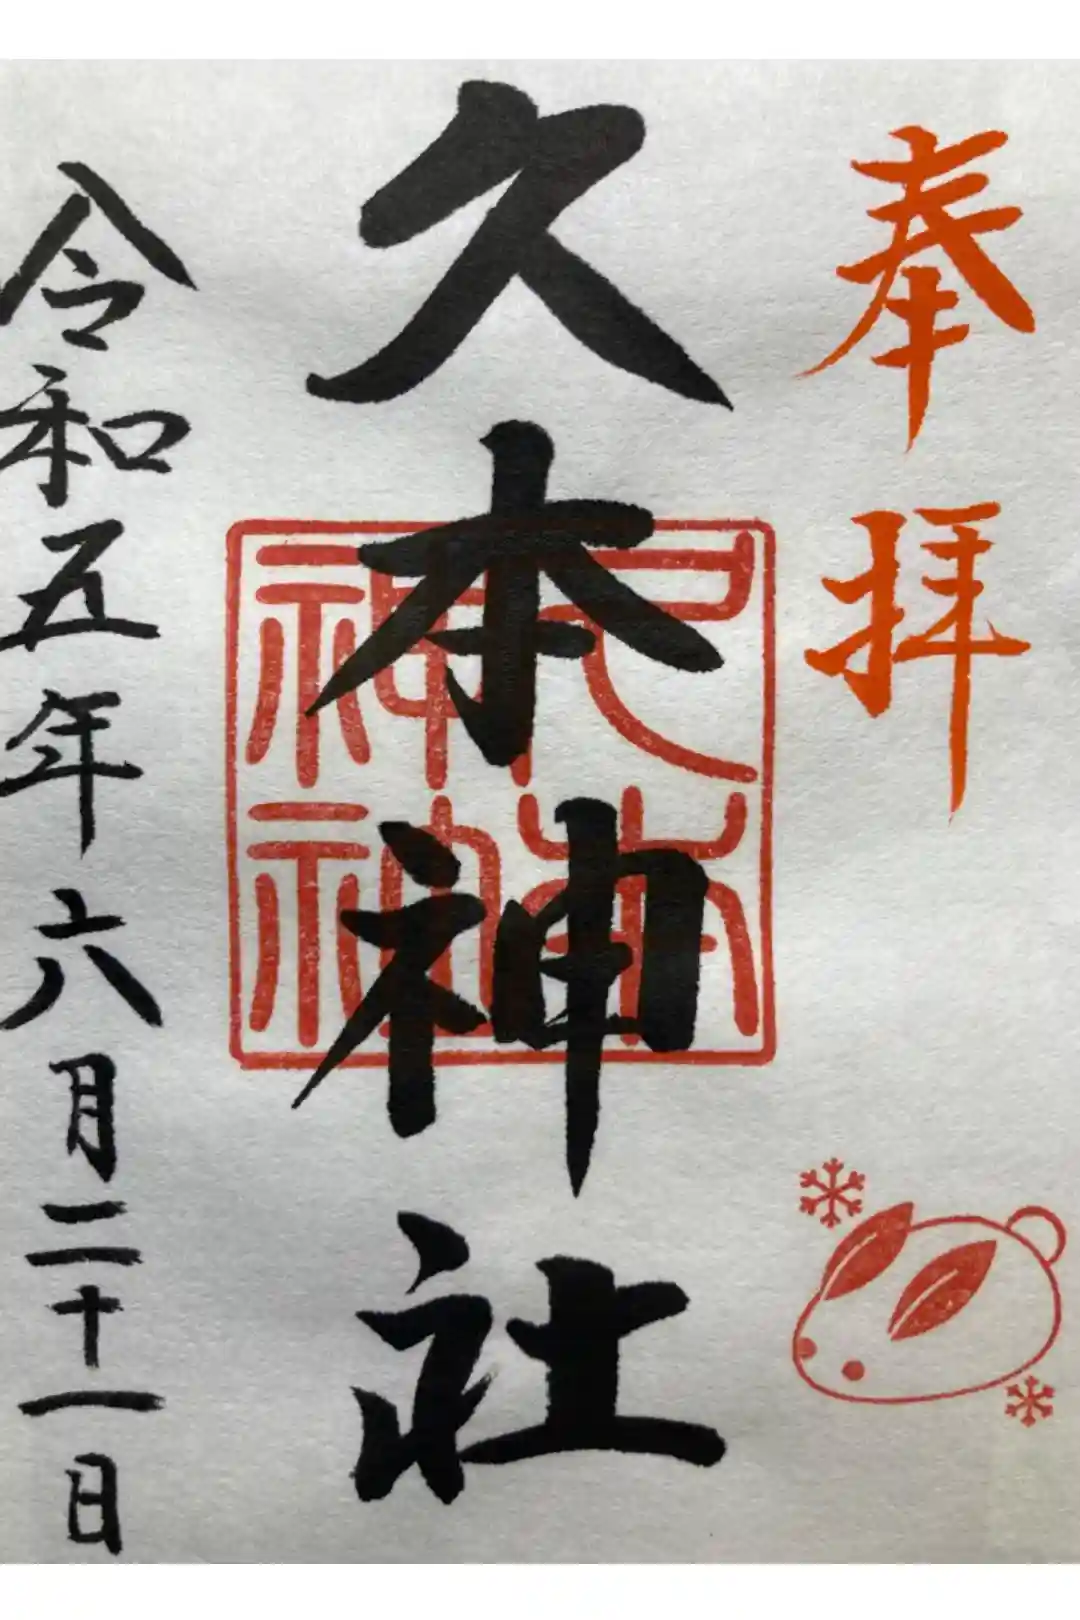 奉拝
久本神社
久本
神社
令和五年六月二十一日